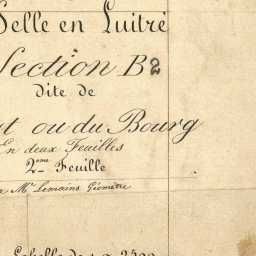 Selle en Luitré
Section B2
dite de
ou du Bourg
En deux Feuilles
2eme Feuille
Mr Lemains Géomètre
Echelle de 1 a 2500